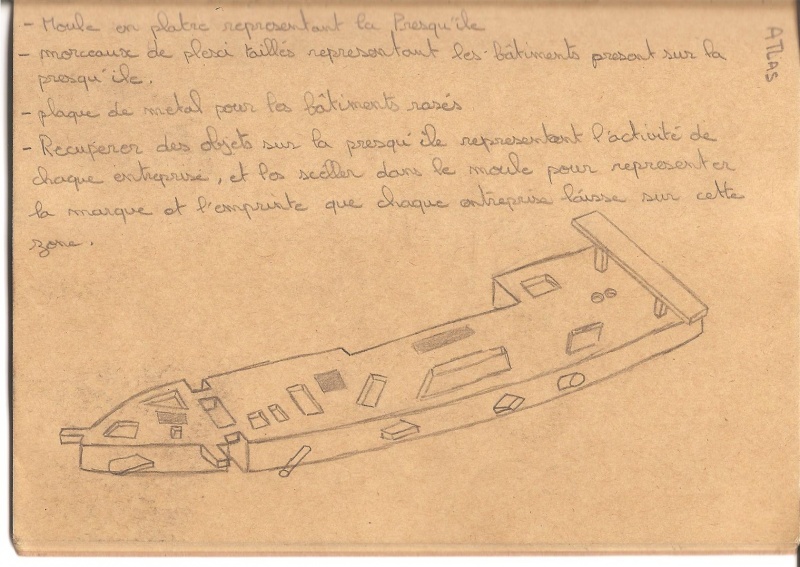 - Moule en platre representant la Presqu'ile
- morceaux de plexi taillés representant les bâtiments present sur la
presqu'ile.
- plaque de metal pour les bâtiments rasés
- Récuperer des objets sur la presqu'ile representent l'activité de
chaque entreprise, et les scéller dans le moule pour representer
la marque et l'emprunte que chaque entreprise laisse sur cette
zone.
ATLAS